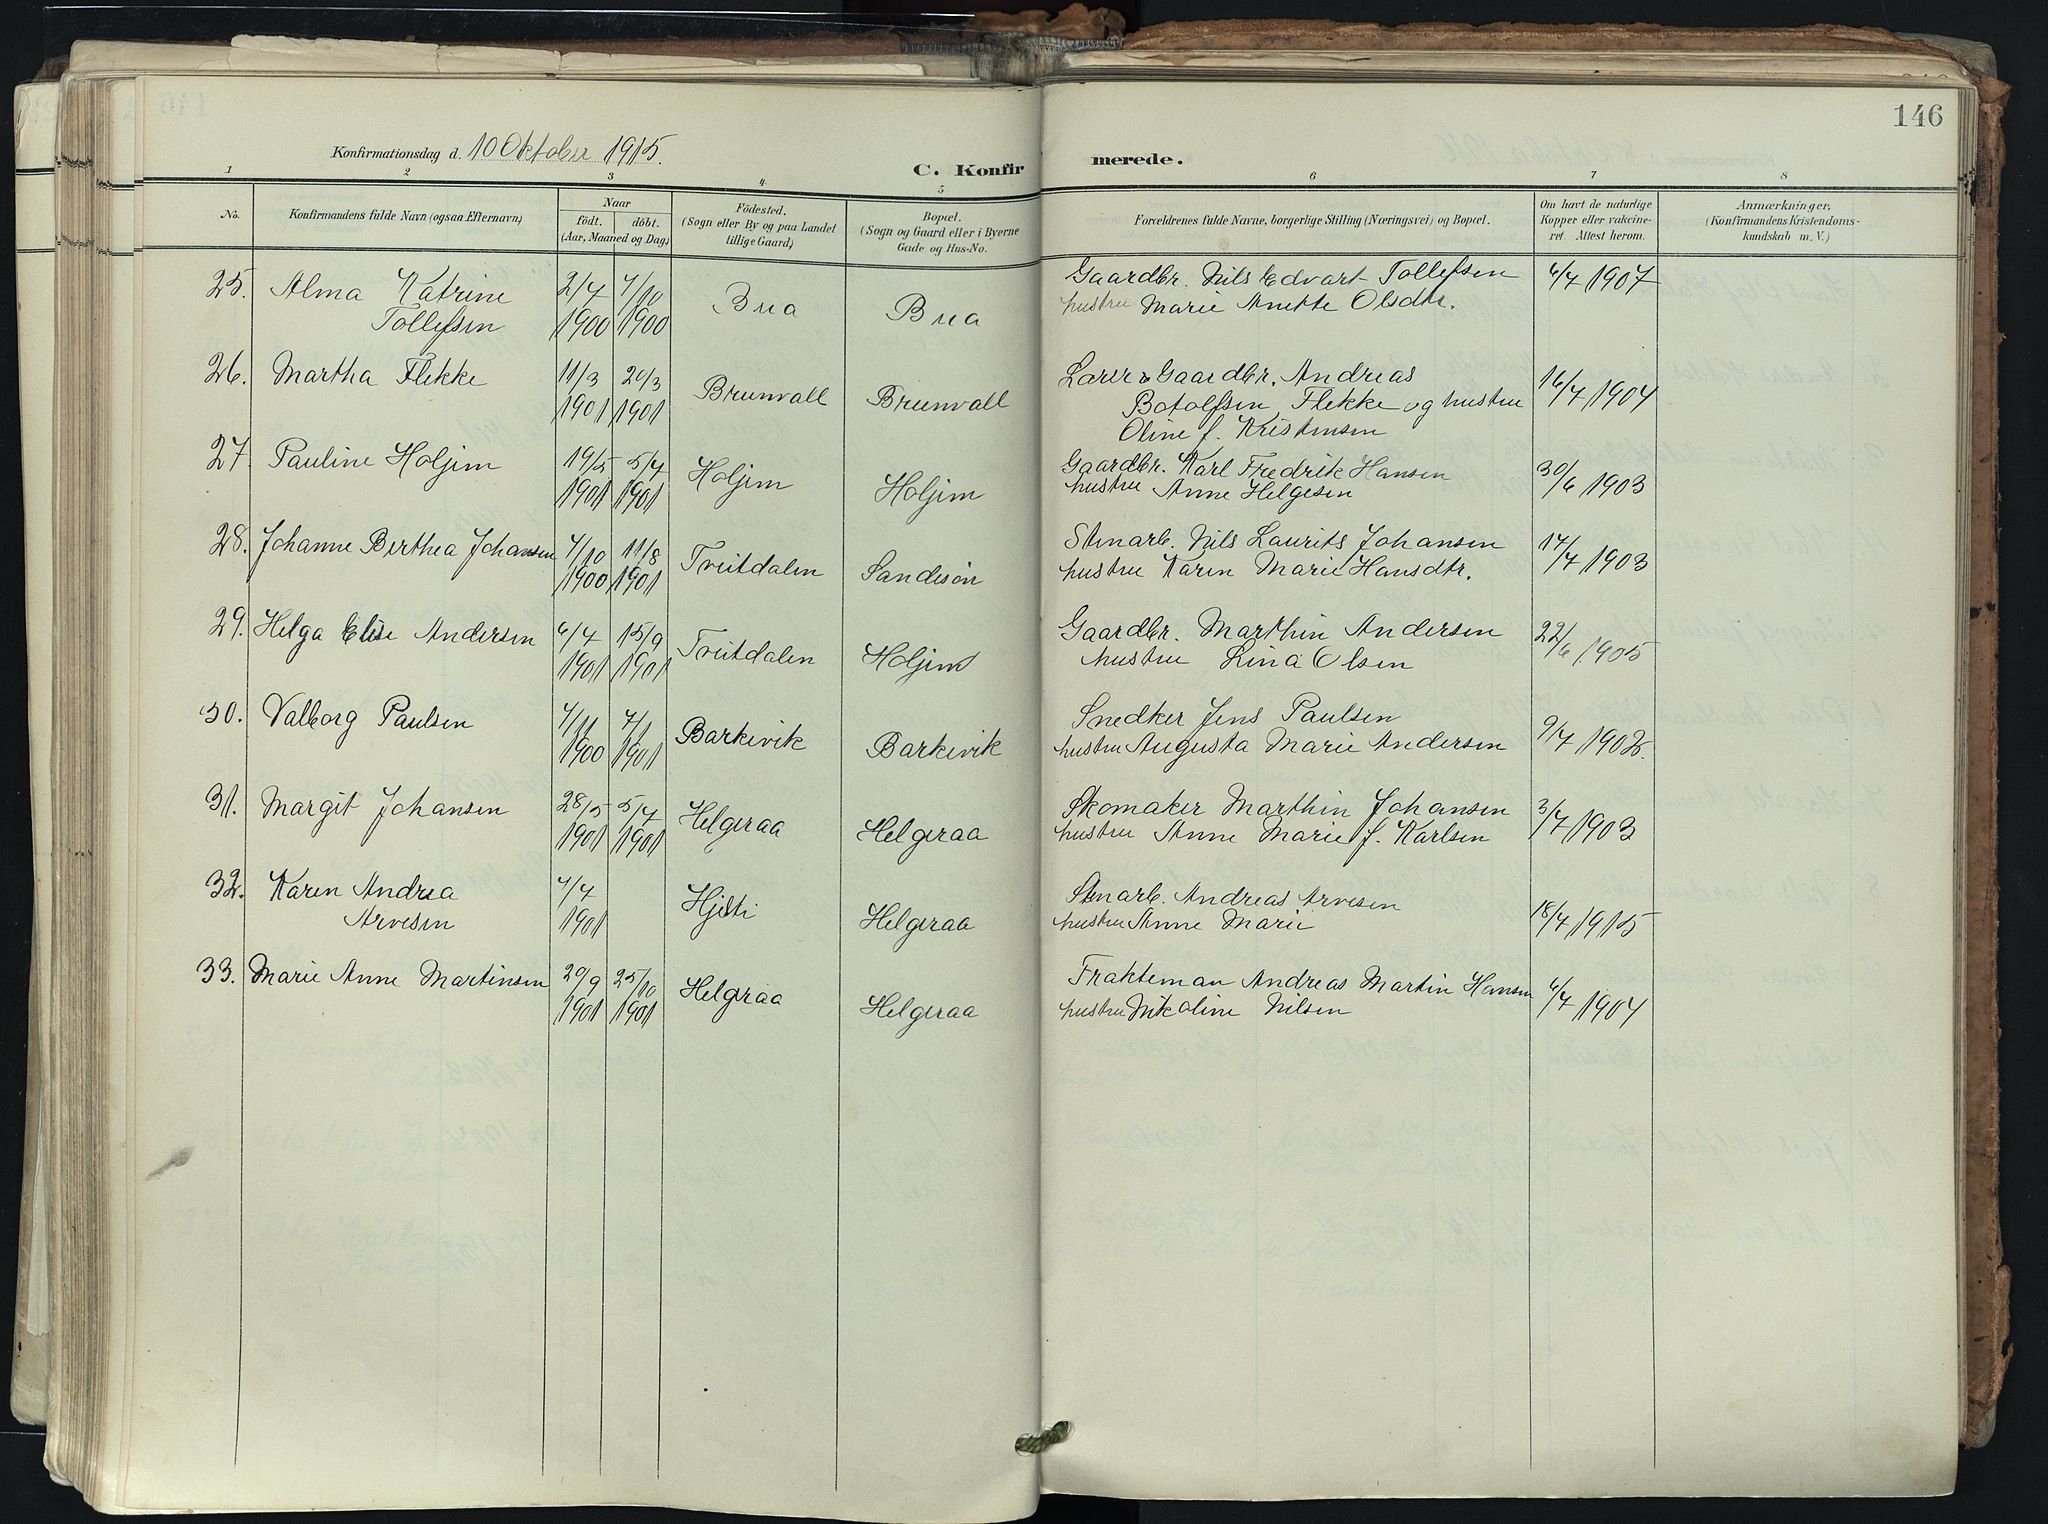 146
Konfirmationsdag d. 10 Oktober 1915.
C. Konfirmerede.
1 2 3 4 5 6 7 8
No.
Konfirmandens fulde Navn (ogsaa Efternavn)
Naar
födt. döbt.
(Aar, Maaned og Dag)
Födested.
(Sogn eller By og paa Landet
tillige Gaard)
Bopæl.
(Sogn og Gaard eller i Byerne
Gade og Hus-No.
Forældrenes fulde Navne, borgerlige Stilling (Næringsvei) og Bopæl.
Om havt de naturlige
Kopper eller vakcine-
ret. Attest herom.
Anmærkninger,
(Konfirmandens Kristendoms-
kundskab m. V.)
25. Alma Katrine 2/4 7/10 Bua Bua Gaardbr. Nils Edvart Tollefsen 6/7 1907
Tollefsen 1900 1900 hustru Marie Anette Olsdtr.
26. Martha Flekke 11/3 20/3 Brunvall Brunvall Lærer & Gaardbr. Andreas 16/7 1904
1901 1901 Botolfsen Flekke og hustru
Oline f. Kristensen
27. Pauline Holjim 19/5 5/4 Holjim Holjim Gaardbr. Karl Fredrik Hansen 30/6 1903
1901 1901 hustru Anne Helgesen
28. Johanne Berthea Johansen 7/10 11/8 Tveitdalen Sandisön Stenarb. Nils Laurits Johansen 17/7 1903
1900 1901 hustru Karen Marie Hansdtr.
29. Helga Elise Andersen 6/7 15/9 Tveitdalen Holjim Gaardbr. Marthin Andersen 22/6 1905
1901 1901 hustru Lina Olsen
30. Valborg Paulsen 7/11 7/1 Barkevik Barkevik Snedker Jens Paulsen 9/7 1902
1900 1901 hustru Augusta Marie Andersen
31. Margit Johansen 28/5 5/4 Helgeraa Helgeraa Skomaker Marthin Johansen 3/7 1903
1901 1901 hustru Anne Marie f. Karlsen
32. Karen Andrea 7/7 Hjelti Helgeraa Stenarb. Andreas Arvesen 18/7 1915
Arvesen 1901 hustru Anne Marie
33. Marie Anne Martinsen 20/9 25/10 Helgeraa Helgeraa Frakteman Andreas Martin Hansen 6/7 1904
1901 1901 hustru Nikoline Nilsen